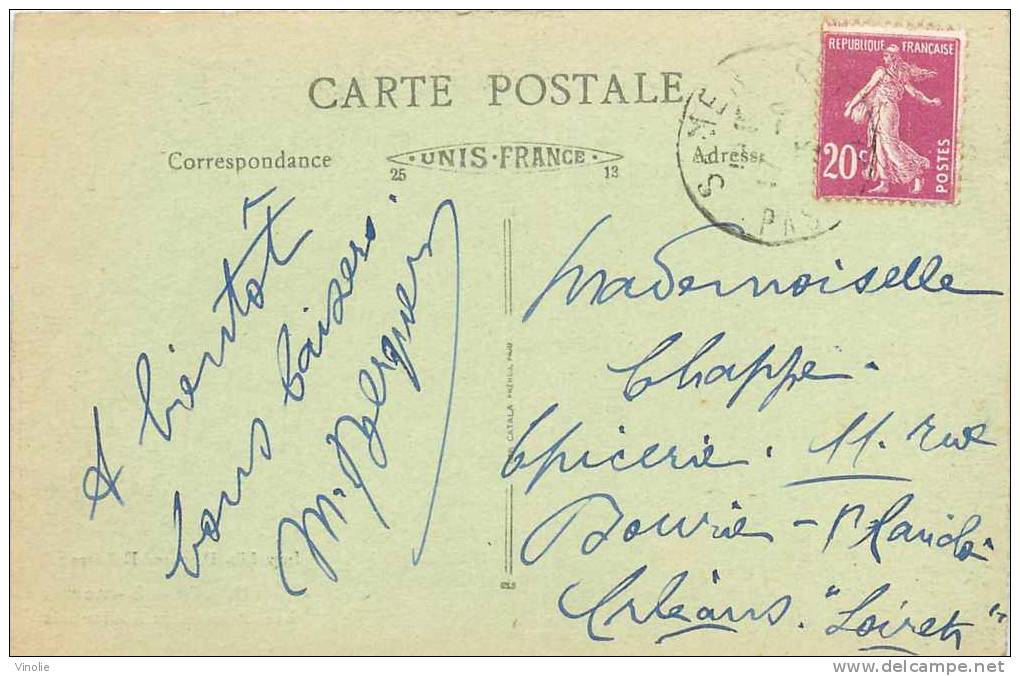 CARTE POSTALE
Correspondance
UNIS·FRANCE
25
13
Adresse
REPUBLIQUE FRANÇAISE
20c
POSTES
SAMER
PAS
A bientôt
bons baisers.
M. Berquier
Mademoiselle
Chappe.
Epicerie. 11. rue
Bourie-
Orléans. "Loiret"
CATALA FRÈRES, PARIS
Vinolie
www.delcampe.net